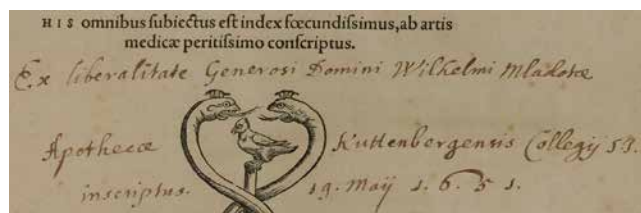 HIS omnibus ſubiectus eſt index fœcundiſsimus, ab artis
medicæ peritiſsimo conſcriptus.
Ex liberalitate Generosi Domini Wilhelmi Mladotæ
Apothecæ Kuttenbergensis Collegij SJ.
inscriptus. 19. Maÿ 1. 6. 5 1.